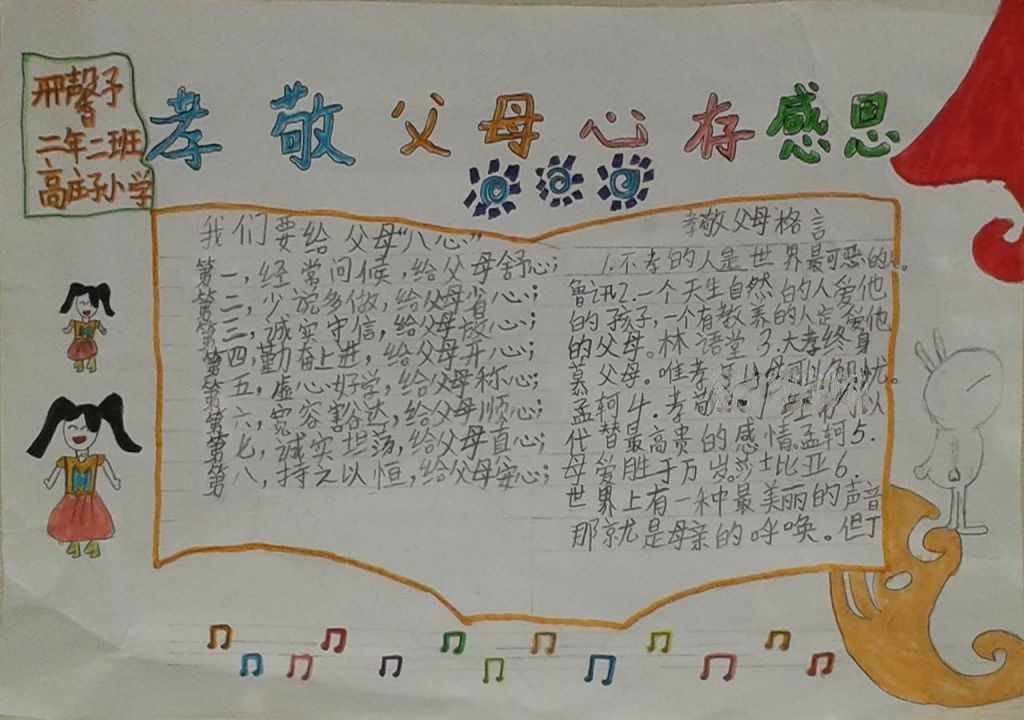 邢馨予
二年二班
高庄子小学
孝敬父母心存感恩
我们要给父母"八心"
第一,经常问候,给父母舒心;
第二,少说多做,给父母省心;
第三,诚实守信,给父母放心;
第四,勤奋上进,给父母开心;
第五,虚心好学,给父母称心;
第六,宽容豁达,给父母顺心;
第七,诚实坦荡,给父母直心;
第八,持之以恒,给父母安心;
孝敬父母格言
1.不孝的人是世界最可恶的人。
2.一个天生自然的人爱他
的孩子,一个有教养的人定会爱他
的父母。林语堂3.大孝终身
慕父母。唯孝
忧。
孟轲4.孝敬
以
代替最高贵的感情.孟轲5.
母爱胜于万岁.莎士比亚6.
世界上有一种最美丽的声音
那就是母亲的呼唤。但丁
M
M